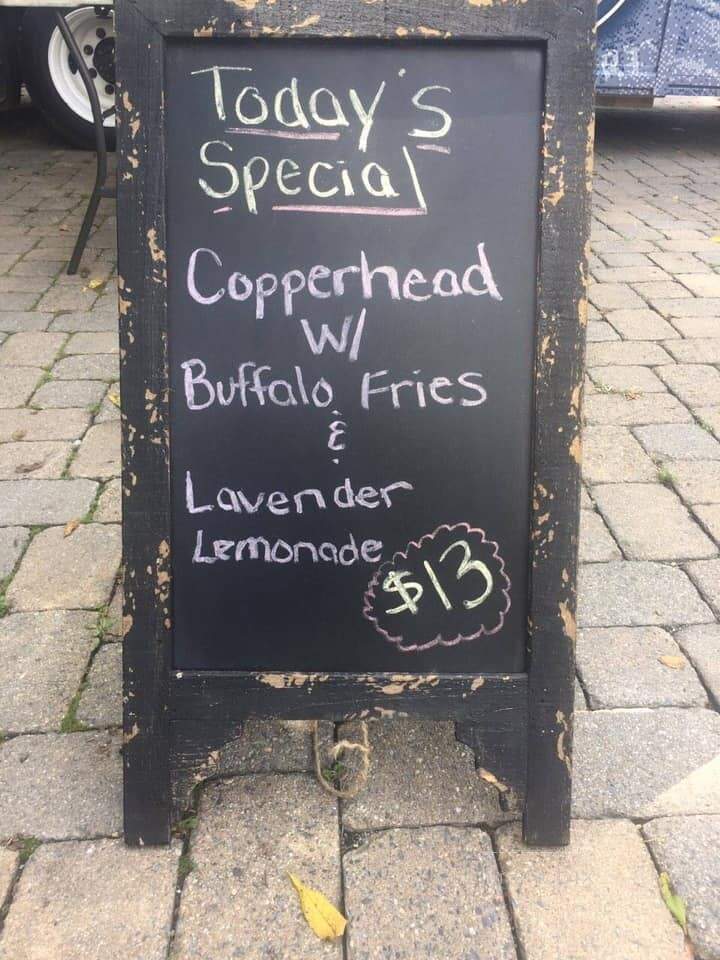 Today's
Special
Copperhead
W/
Buffalo Fries
&
Lavender
Lemonade
$13